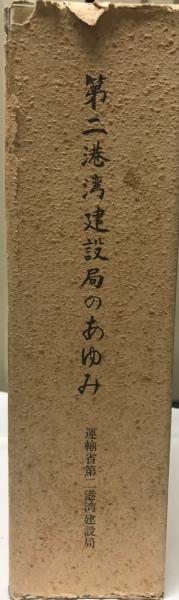 第二港湾建設局のあゆみ
運輸省第二港湾建設局